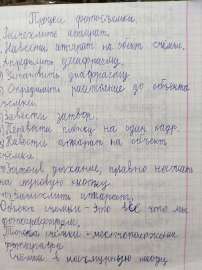 Процесс фотосъёмки.
Зачехлить аппарат.
Навести аппарат на объект съёмки.
Определить диафрагму.
Установить диафрагму
Определить расстояние до объекта
съёмки.
Завести затвор.
Перевести плёнку на один кадр.
Навести аппарат на объект
съёмки
Затаив дыхание, плавно нажать
на спусковую кнопку.
аппарат.
Объект съёмки - это всё что мы
фотографируем,
Точка съёмки - местоположение
фотографа
Съёмка в пасмурную погоду